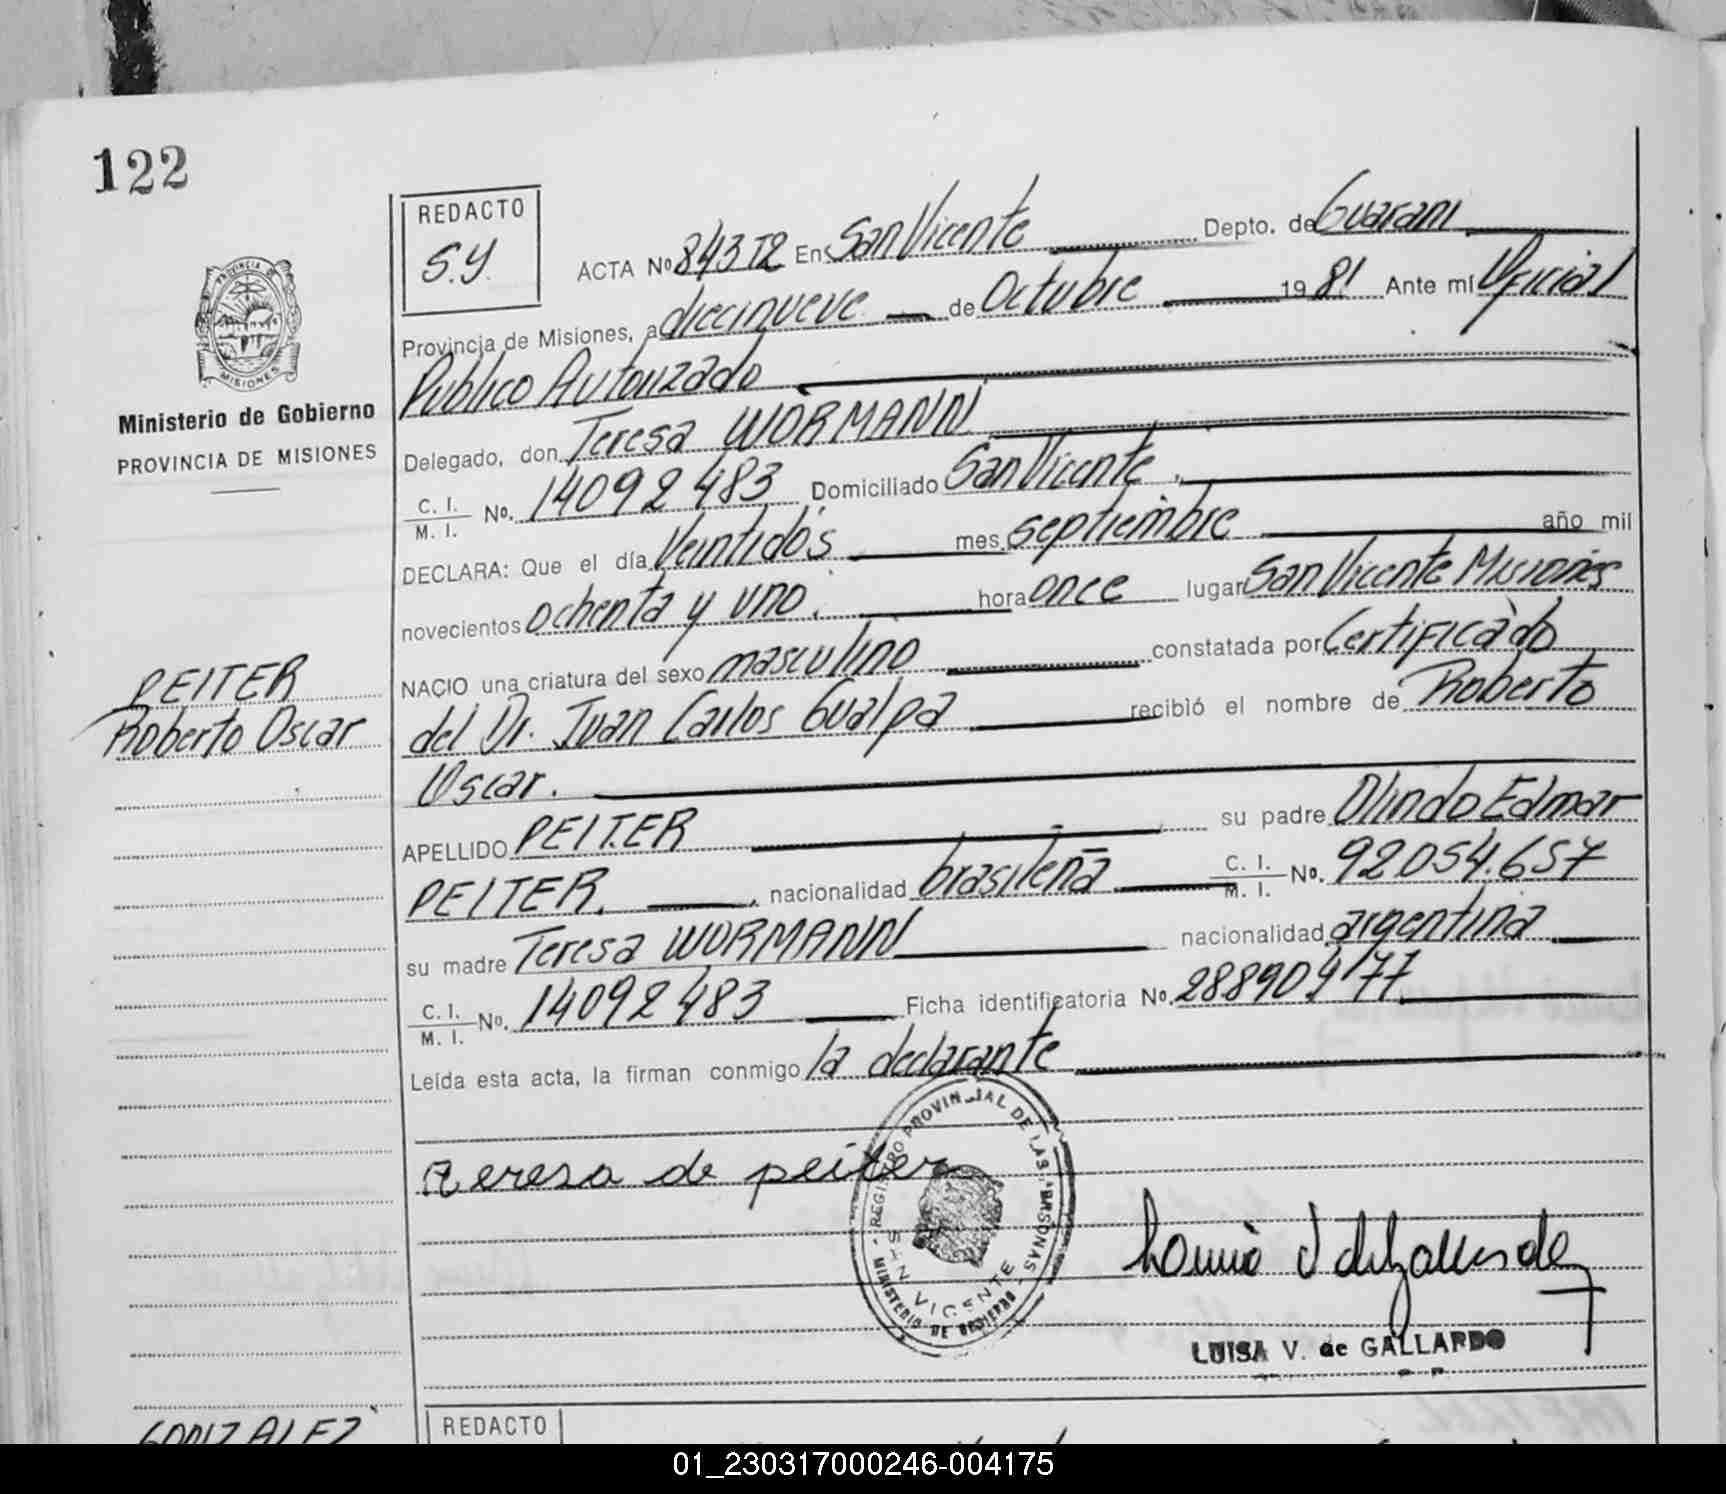 122
REDACTO
S.Y.
ACTA No 843 T2 En San Vicente Depto. de Guarani
Provincia de Misiones, a diecinueve de Octubre 1981 Ante mí Oficial
Publico Autorizado
Delegado, don Teresa WORMANN
C. I. M. I. No. 14092483 Domiciliado San Vicente
DECLARA: Que el día Veintidós mes septiembre año mil
novecientos ochenta y uno. hora once lugar San Vicente Misiones
NACIO una criatura del sexo masculino constatada por Certificado
del Dr. Juan Carlos Gualpa recibió el nombre de Roberto
Oscar.
APELLIDO PEITER su padre Olindo Edmar
PEITER. nacionalidad brasileña C. I. M. I. No. 92054.657
su madre Teresa WORMANN nacionalidad argentina
C. I. M. I. No. 14092483 Ficha identificatoria No. 288904/77
Leída esta acta, la firman conmigo la declarante
teresa de peiter
REGISTRO PROVINCIAL DE LAS PERSONAS
SAN VICENTE
MINISTERIO DE GOBIERNO
LUISA V. de GALLARDO
PROVINCIA DE
MISIONES
Ministerio de Gobierno
PROVINCIA DE MISIONES
PEITER
Roberto Oscar
GONZALEZ
REDACTO
01_230317000246-004175